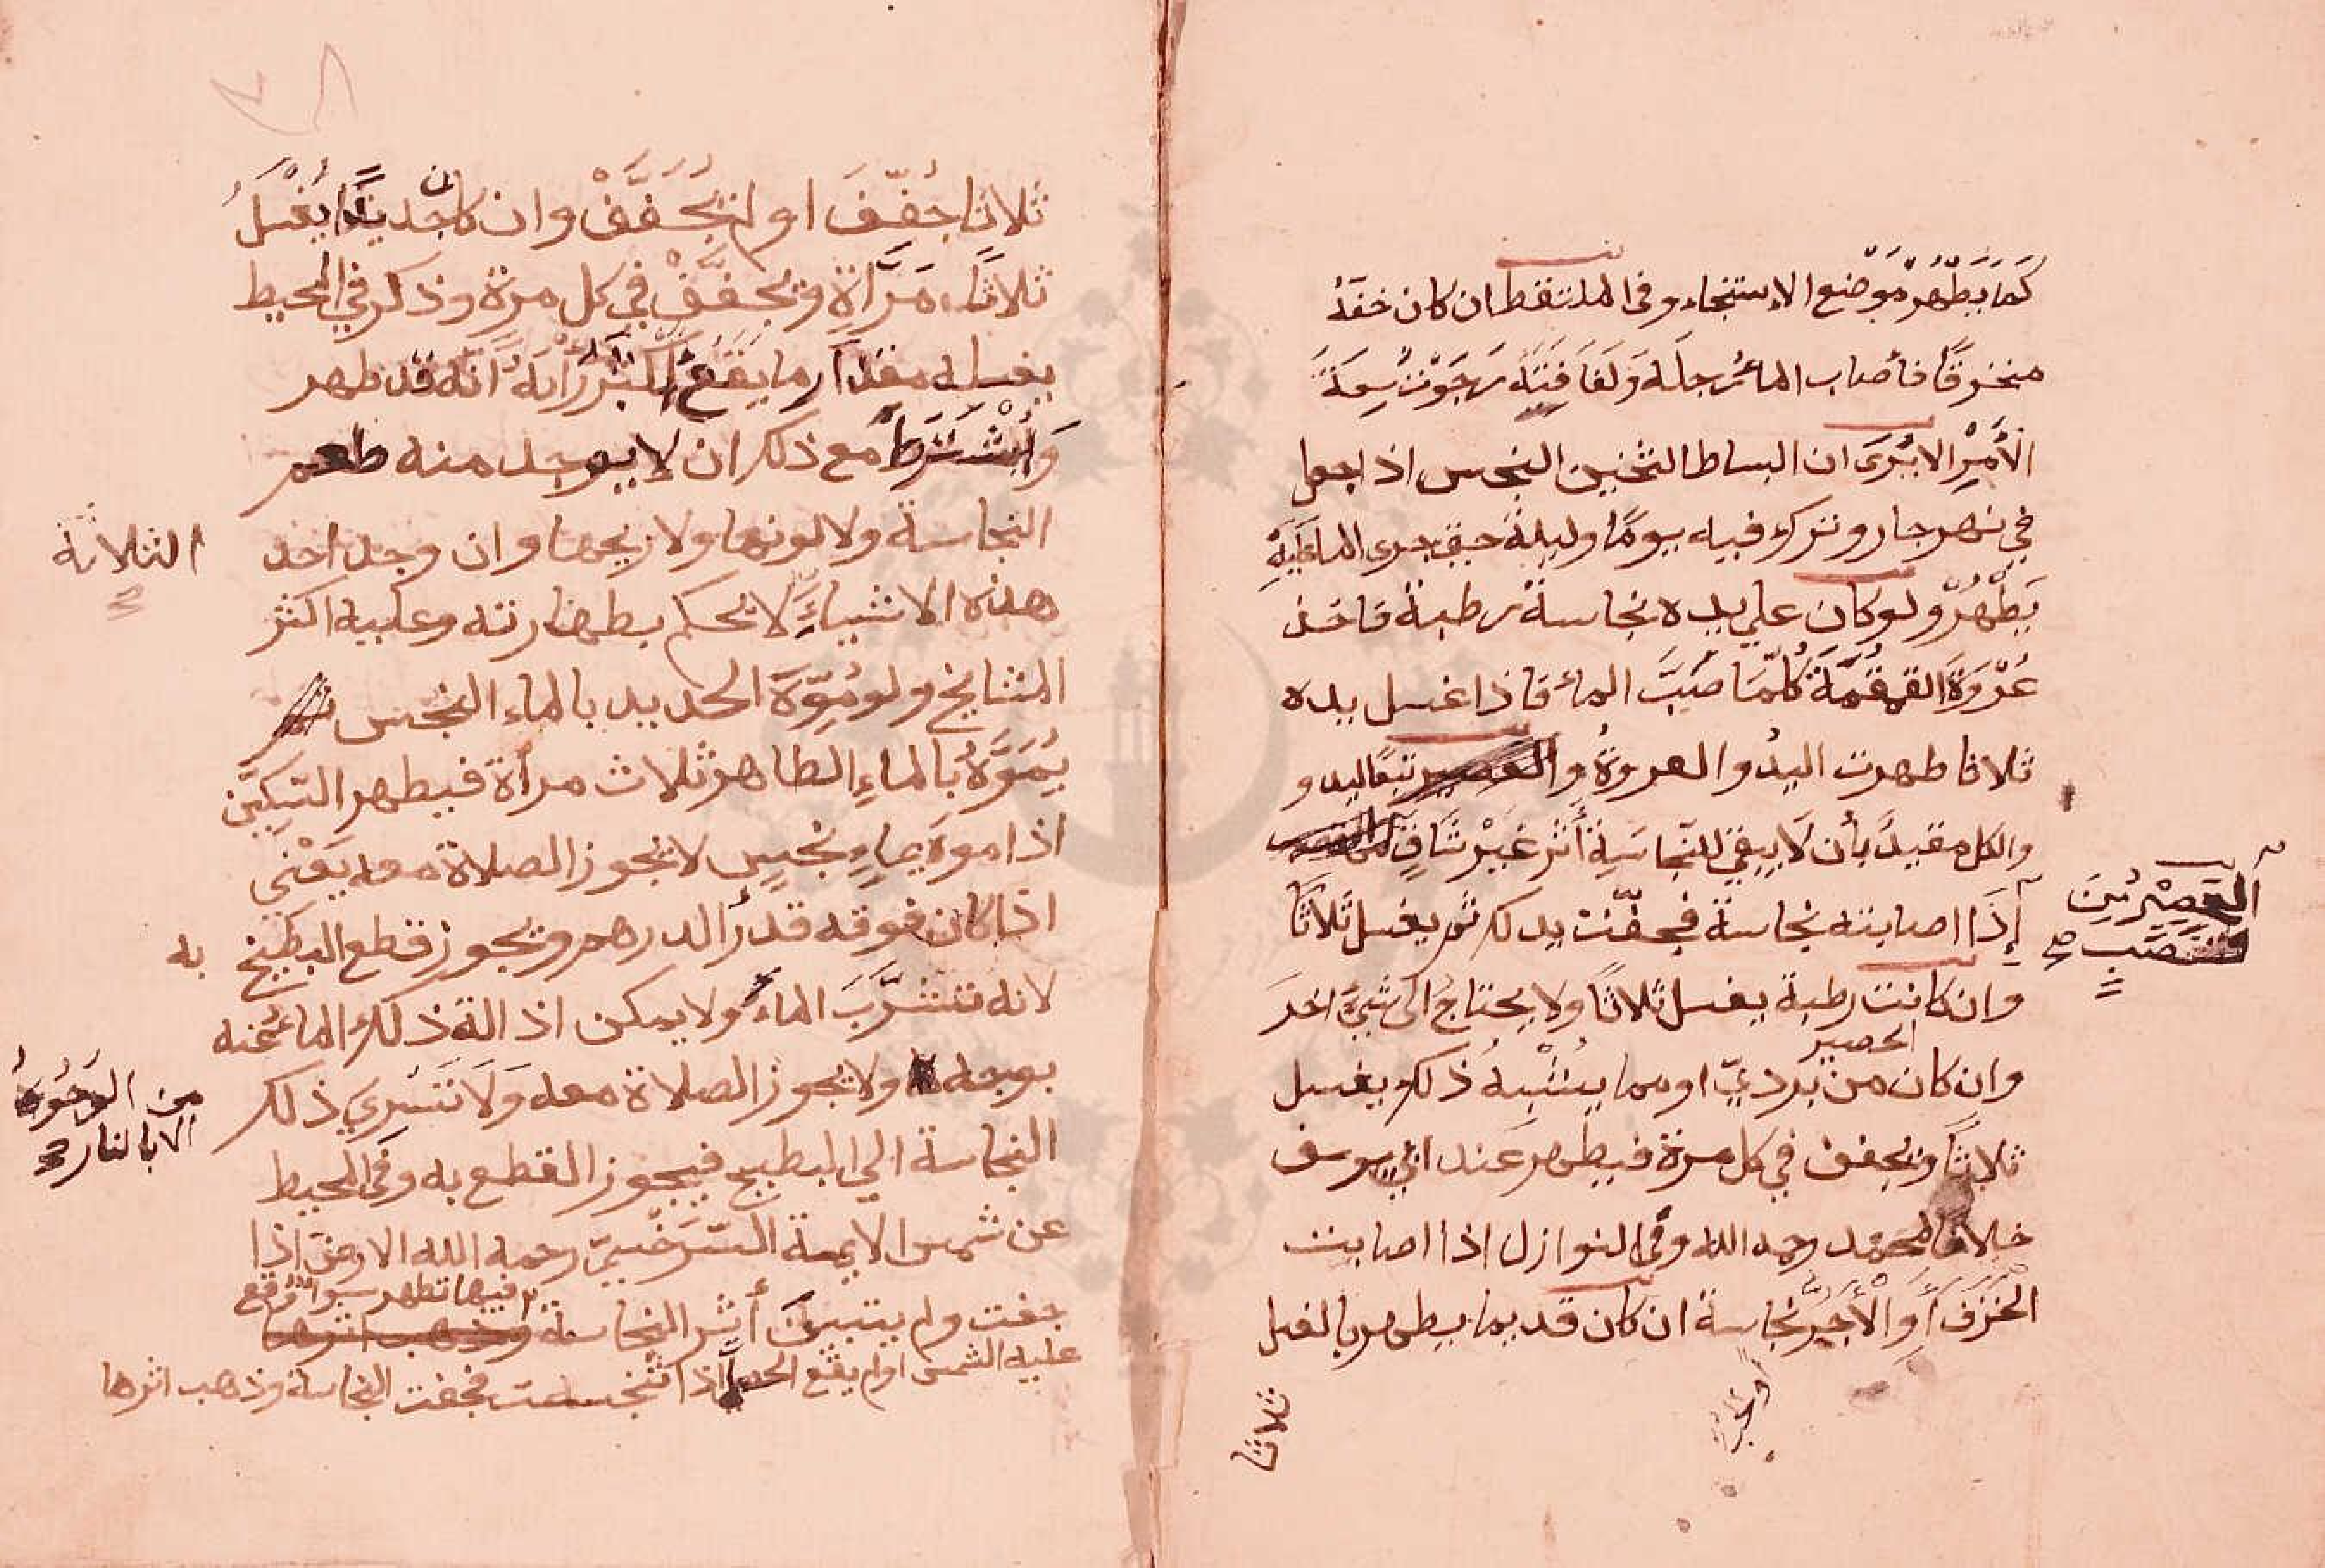 كَمَا يَطْهُرُ مَوْضِع الاستنجاء وفى الملتقط ان كان خفه
منخرقًا فأصاب الماء رجله ولفافته رجوت سعة
الأمر الا يُرَى ان البساط الثخين النجس اذا جعل
في نهر جار وترك فيه يومًا وليلة حتى جرى الماء عليه
يَطْهُرُ ولو كان علي يده نجاسة رطبة فاخذ
عُرْوَةَ القمقمة كُلَّمَا صَبَّ الماء فاذا غسل يده
ثلاثا طهرت اليدُ والعروةُ تبعًا لليد و
والكل مقيد بأن لا يبقي للنجاسة أَثَر غَيْر شَاقٍ
الحصير من
قصب صح
إِذَا اصابته نجاسة فجفّت يدلك ثم يغسل ثَلاثًا
وان كانت رطبة يغسل ثلاثًا ولا يحتاج الى شيئ اخر
الحصير
وان كان من بَرديّ او مما يشبه ذلك يغسل
ثلاثًا ويجفف في كل مرة فيطهر عند ابي يوسف
خلافا لمحمد رحمه الله وفى النوازل اذا اصابت
الخزف أو الآجر نجاسة ان كان قديما يطهر بالغسل
ثلاثا
ثلاثا جُفِّفَ او لم يُجَفَّفْ وان كان جديدًا يُغْسَلُ
ثلاثًا مَرَّاةٍ ويجفَّفْ في كل مرة وذكر في المحيط
يغسله مقدار ما يقع اكبر رأيه أنه قد طهر
وَاشتَرط مع ذلك ان لا يوجد منه طعم
النجاسة ولا لونها ولا ريحها وان وجد احد
الثلاثة
هذه الاشياءِ لا يحكم بطهارته وعليه اكثر
المشايخ ولو مُوِّهَ الحديد بالماء النجس
يُمَوَّهُ بالماءِ الطاهر ثلاث مرأة فيطهر السكين
اذا موه بماءٍ نجسٍ لا تجوز الصلاة معه يَعْني
اذا كان فوقه قدرُ الدرهم ويجوز قطع البطيخ
به
لانه تشرَّبَ الماءَ ولا يمكن اذالة ذلك الماء عنه
بوجه ولا تجوز الصلاة معه وَلاَ تَسْرِي ذلك
من الوجُوهُ
الا بالنار
النجاسة الي البطيخ فيجوز القطع به وفى المحيط
عن شمس الايمة السَّرَخْسِيّ رحمه الله الارض اذا
جفت ولم يتبين أثر النجاسة فيها تطهر سواء وقع
عليه الشمس او لم يقع الحصا اذا تنجست فجفت النجاسة وذهب اثرها